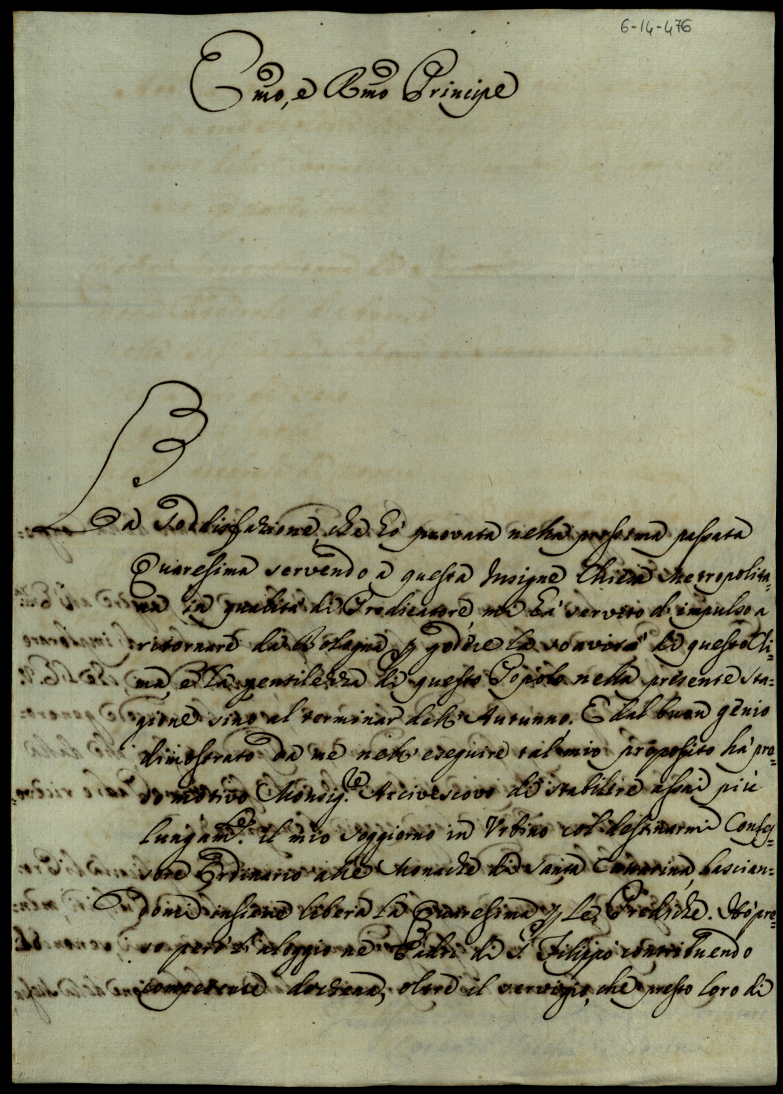 6-14-476
Emo, e Rmo Principe
La Sodisfazione, che hò provata nella prossima passata
Quaresima servendo a questa Insigne Chiesa Metropolita-
na in qualità di Predicatore mi hà servito d'impulso a
ritornare da Bologna p godere la soavità di questo Cli-
ma, e la gentilezza di questo Popolo nella presente sta-
gione sino al terminar dell'Autunno. E dal buon genio
dimostrato da me nell'eseguire tal mio proposito hà pre-
so motivo Monsig.re Arcivescovo di stabilire assai più
lungam.e il mio soggiorno in Urbino col destinarmi Confes-
sore Ordinario alle Monache di Santa Cattarina, lascian-
domi insieme libera la Quaresima p le Prediche. Hò pre-
so però l'aloggio ne Padri di S. Filippo contribuendo
competente dozzena, oltre il servigio, che presto loro di